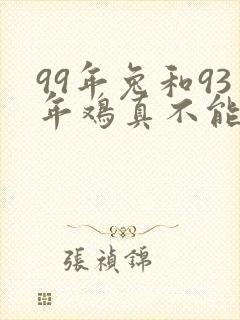 99年兔和93
年鸡真不能
張禎錦